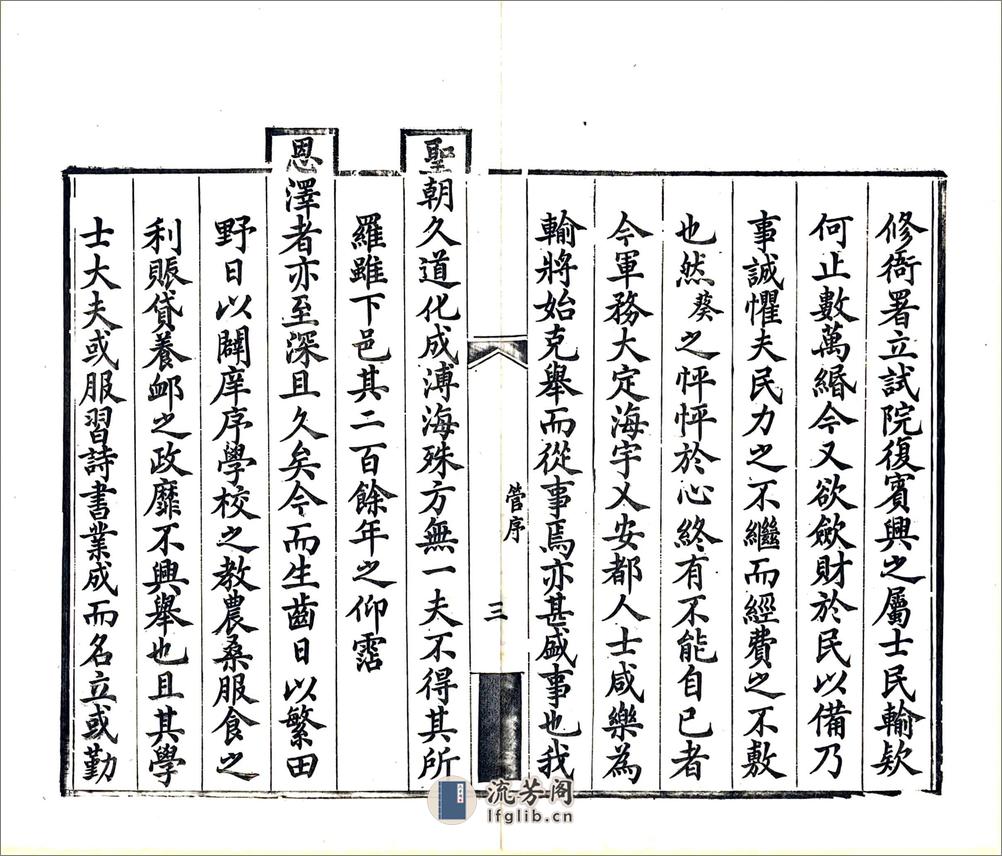 修衙署立試院復賓興之屬士民輸款
何止數萬緡今又欲斂財於民以備乃
事誠懼夫民力之不繼而經費之不敷
也然葵之怦怦於心終有不能自已者
今軍務大定海宇乂安都人士咸樂為
輸將始克舉而從事焉亦甚盛事也我
管序
三
聖朝久道化成溥海殊方無一夫不得其所
羅雖下邑其二百餘年之仰霑
恩澤者亦至深且久矣今而生齒日以繁田
野日以闢庠序學校之教農桑服食之
利賑貸養卹之政靡不興舉也且其學
士大夫或服習詩書業成而名立或勤
流芳阁
lfglib.cn